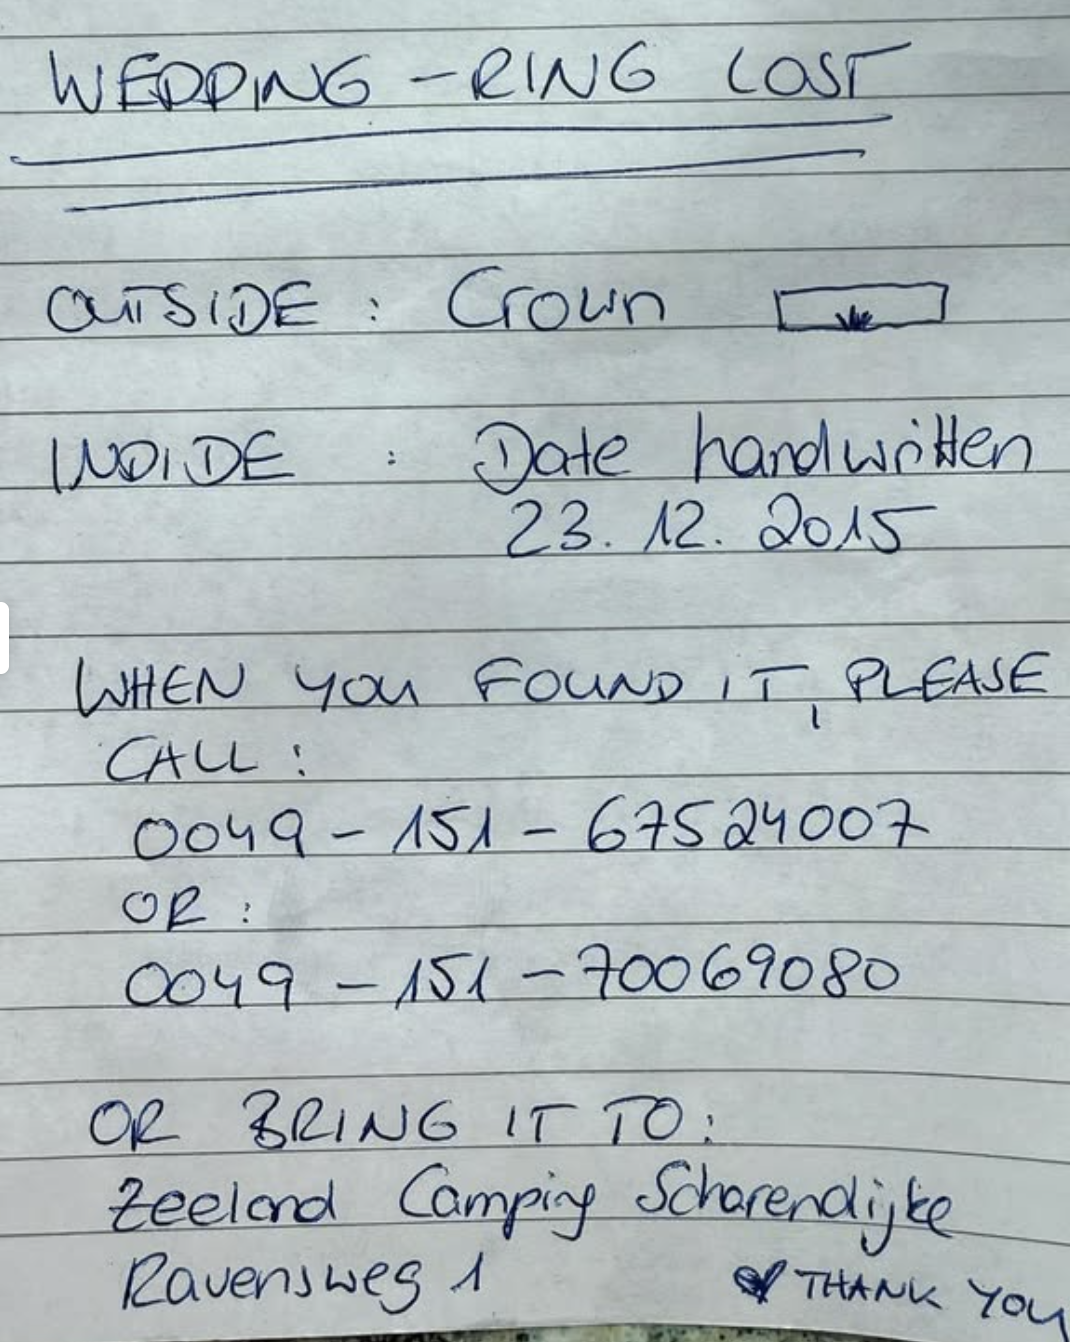 WEDDING - RING LOST
OUTSIDE : Crown
INDIDE : Date handwritten
23. 12. 2015
WHEN YOU FOUND IT, PLEASE
CALL :
0049 - 151 - 67524007
OR :
0049 - 151 - 70069080
OR BRING IT TO :
Zeeland Camping Scharendijke
Ravensweg 1
THANK YOU